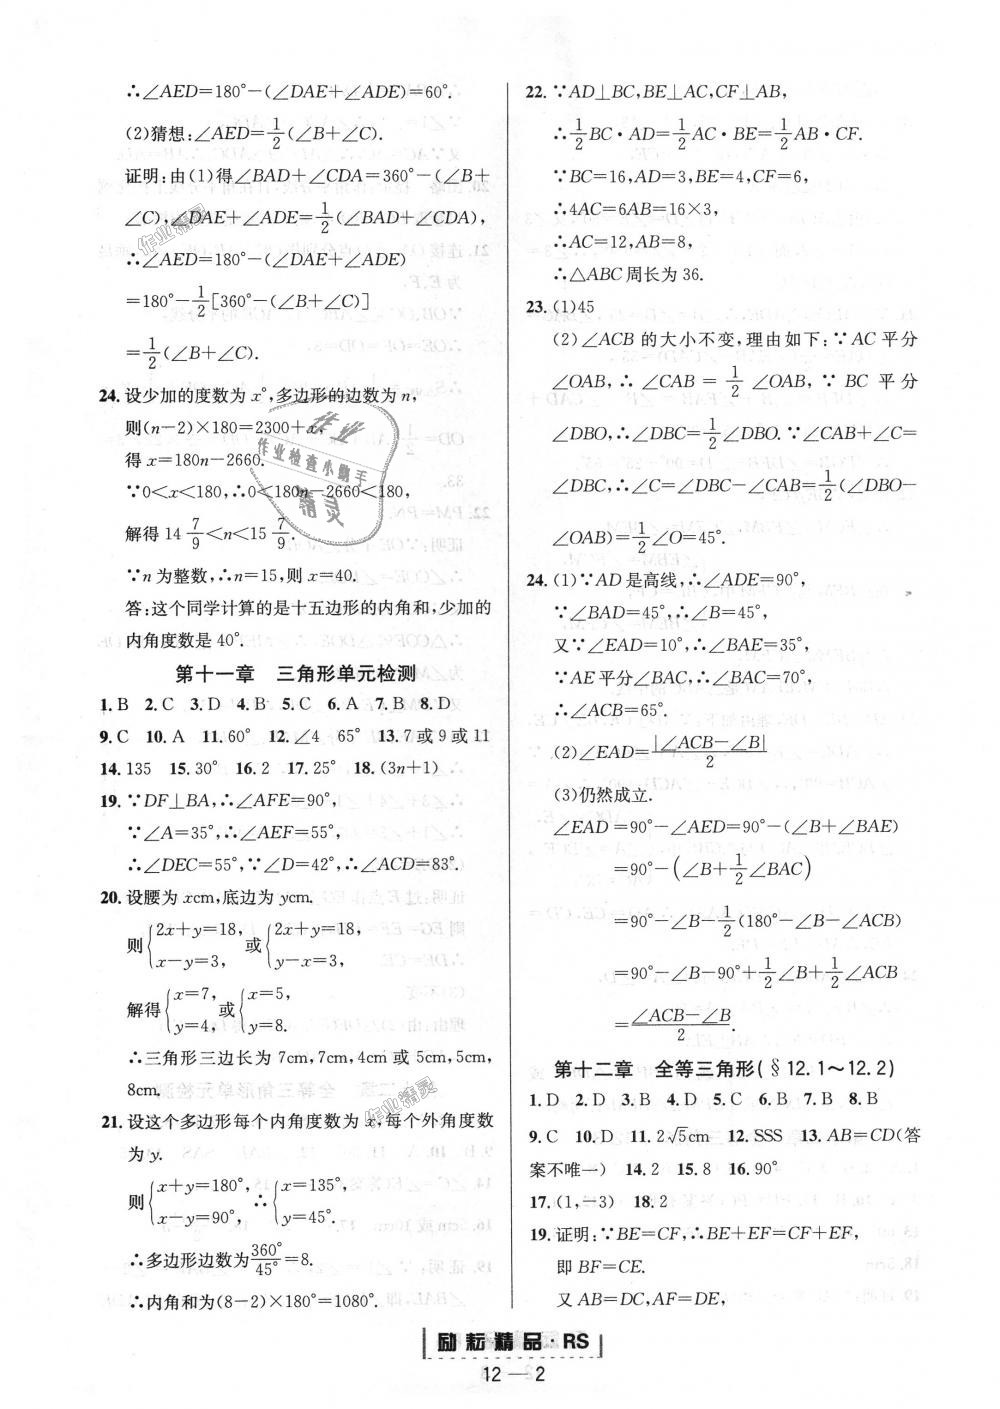 ∴∠AED=180°-(∠DAE+∠ADE)=60°.
(2)猜想:∠AED=1/2(∠B+∠C).
证明:由(1)得∠BAD+∠CDA=360°-(∠B+
∠C),∠DAE+∠ADE=1/2(∠BAD+∠CDA),
∴∠AED=180°-(∠DAE+∠ADE)
=180°-1/2[360°-(∠B+∠C)]
=1/2(∠B+∠C).
24. 设少加的度数为 x°,多边形的边数为 n,
则(n-2)×180=2300+x.
得 x=180n-2660.
∵0<x<180,∴0<180n-2660<180,
解得 14 7/9<n<15 7/9.
∵n 为整数,∴n=15,则 x=40.
答:这个同学计算的是十五边形的内角和,少加的
内角度数是 40°.
第十一章 三角形单元检测
1. B 2. C 3. D 4. B 5. C 6. A 7. B 8. D
9. C 10. A 11. 60° 12. ∠4 65° 13. 7 或 9 或 11
14. 135 15. 30° 16. 2 17. 25° 18. (3n+1)
19. ∵DF⊥BA,∴∠AFE=90°,
∵∠A=35°,∴∠AEF=55°,
∴∠DEC=55°,∵∠D=42°,∴∠ACD=83°.
20. 设腰为 xcm,底边为 ycm.
则{2x+y=18, x-y=3, 或{2x+y=18, y-x=3,
解得{x=7, y=4, 或{x=5, y=8.
∴三角形三边长为 7cm,7cm,4cm 或 5cm,5cm,
8cm.
21. 设这个多边形每个内角度数为 x,每个外角度数
为 y.
则{x+y=180°, x-y=90°, ∴{x=135°, y=45°.
∴多边形边数为360°/45°=8.
∴内角和为(8-2)×180°=1080°.
22. ∵AD⊥BC,BE⊥AC,CF⊥AB,
∴1/2BC·AD=1/2AC·BE=1/2AB·CF.
∵BC=16,AD=3,BE=4,CF=6,
∴4AC=6AB=16×3,
∴AC=12,AB=8,
∴△ABC 周长为 36.
23. (1)45
(2)∠ACB 的大小不变,理由如下:∵AC 平分
∠OAB,∴∠CAB=1/2∠OAB,∵BC 平分
∠DBO,∴∠DBC=1/2∠DBO.∵∠CAB+∠C=
∠DBC,∴∠C=∠DBC-∠CAB=1/2(∠DBO-
∠OAB)=1/2∠O=45°.
24. (1)∵AD 是高线,∴∠ADE=90°,
∵∠BAD=45°,∴∠B=45°,
又∵∠EAD=10°,∴∠BAE=35°,
∵AE 平分∠BAC,∴∠BAC=70°,
∴∠ACB=65°.
(2)∠EAD=|∠ACB-∠B|/2
(3)仍然成立.
∠EAD=90°-∠AED=90°-(∠B+∠BAE)
=90°-(∠B+1/2∠BAC)
=90°-∠B-1/2(180°-∠B-∠ACB)
=90°-∠B-90°+1/2∠B+1/2∠ACB
=∠ACB-∠B/2.
第十二章 全等三角形(§12.1~12.2)
1. D 2. D 3. B 4. D 5. C 6. B 7. B 8. B
9. C 10. D 11. 2√5cm 12. SSS 13. AB=CD(答
案不唯一) 14. 2 15. 8 16. 90°
17. (1,-3) 18. 2
19. 证明:∵BE=CF,∴BE+EF=CF+EF,
即 BF=CE.
又 AB=DC,AF=DE,
励耘精品·RS
12—2
作业精灵
作业
作业检查小助手
精灵
作业精灵